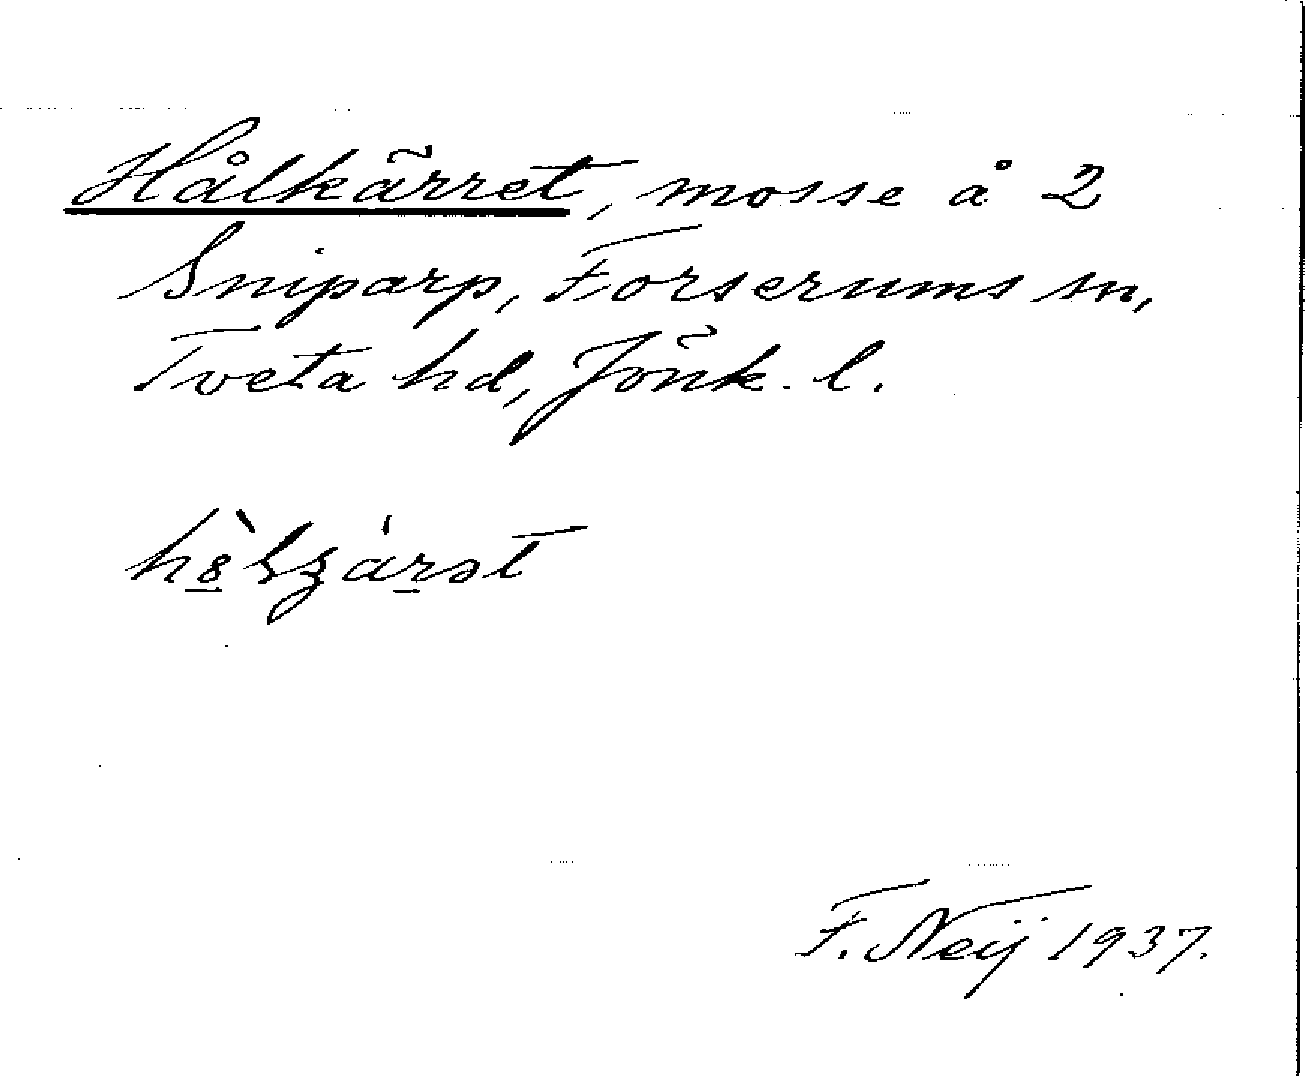 Hålkärret, mosse å 2
Sniparp, Forserums sn,
Tveta hd, Jönk. l.
F. Neij 1937.